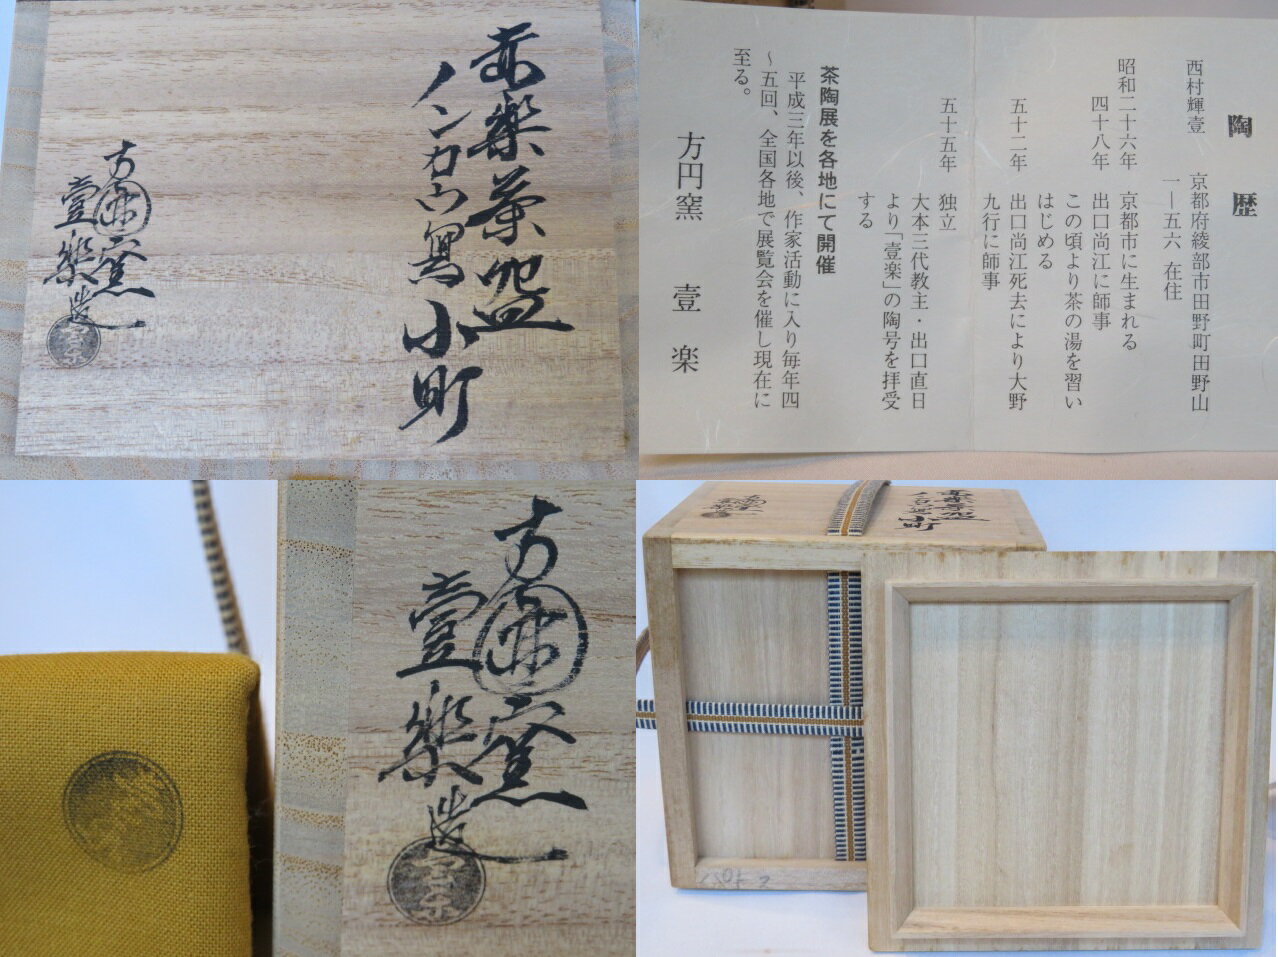 赤楽茶碗
ノンカウ写 小町
方円窯
壹楽造
陶歴
西村輝壹 京都府綾部市田野町田野山
一―五六 在住
昭和二十六年 京都市に生まれる
四十八年 出口尚江に師事
この頃より茶の湯を習い
はじめる
五十二年 出口尚江死去により大野
九行に師事
五十五年 独立
大本三代教主・出口直日
より「壹楽」の陶号を拝受
する
茶陶展を各地にて開催
平成三年以後、作家活動に入り毎年四
~五回、全国各地で展覧会を催し現在に
至る。
方円窯 壹楽
方円窯
壹楽造
赤楽茶碗
ノンカウ写 小町